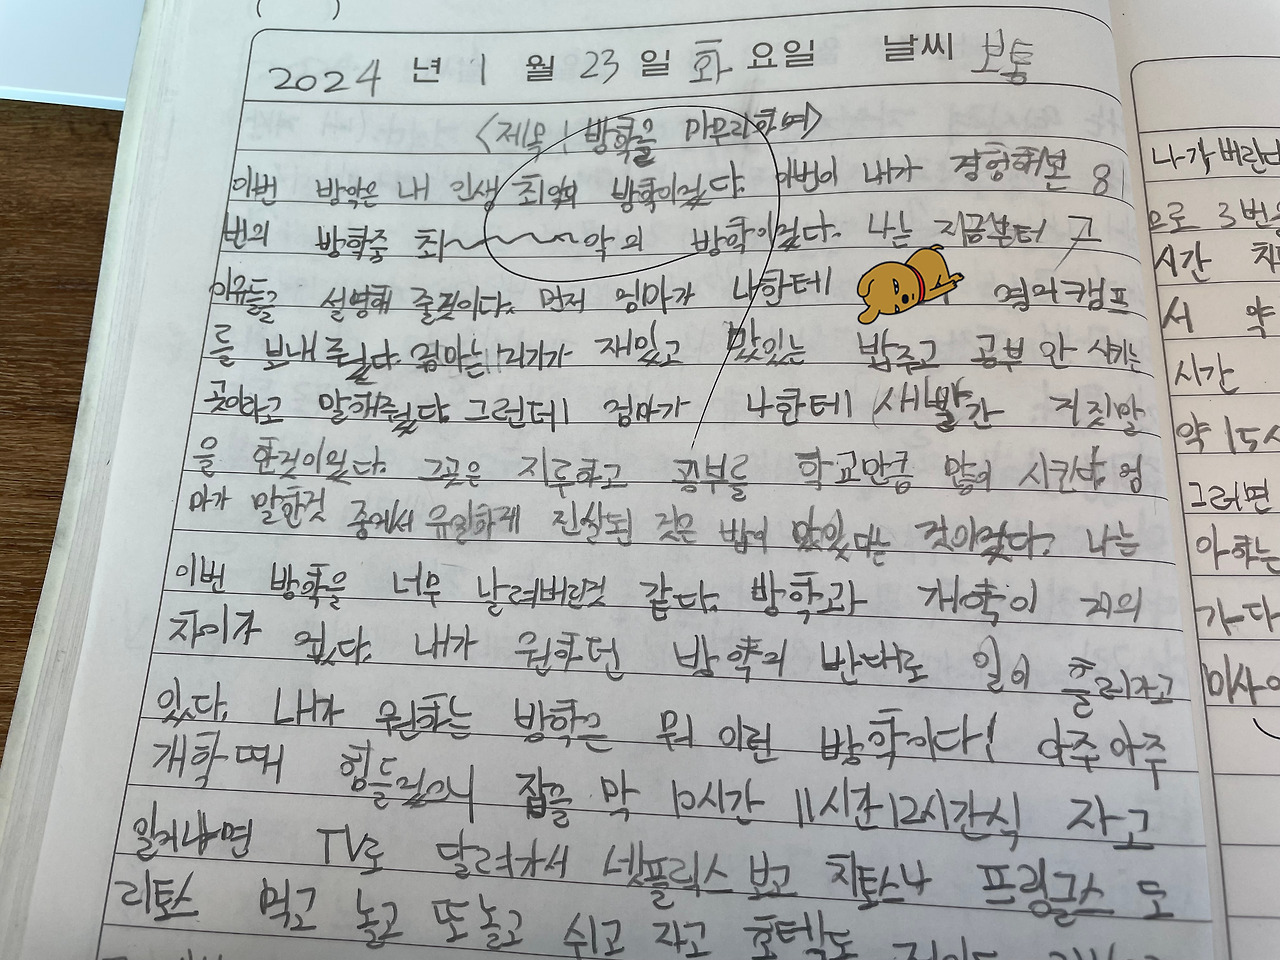 2024 년 1 월 23 일 화 요일 날씨 보통
<제목: 방학을 마무리하며>
이번 방학은 내 인생 최악의 방학이었다. 이번이 내가 경험해본 8
번의 방학중 최~~~~악의 방학이였다. 나는 지금부터 그
이유들을 설명해 줄것이다. 먼저 엄마가 나한테 영어캠프
를 보내주었다. 엄마는 거기가 재밌고 맛있는 밥주고 공부 안 시키는
곳이라고 말해주었다. 그런데 엄마가 나한테 새빨간 거짓말
을 한것이였다. 그곳은 지루하고 공부를 학교만큼 많이 시킨다. 엄
마가 말한것 중에서 유일하게 진실된 것은 밥이 맛있다는 것이였다. 나는
이번 방학을 너무 날려버린것 같다. 방학과 개학이 거의
차이가 없다. 내가 원하던 방학의 반대로 일이 흘러가고
있다. 내가 원하는 방학은 뭐 이런 방학이다! 아주아주
개학때 힘들었으니 잠을 막 10시간 11시간 12시간씩 자고
일어나면 TV로 달려가서 넷플릭스 보고 치토스나 프링글스 도
리토스 먹고 놀고 또 놀고 쉬고 자고 호텔도
나가버린다
으로 3번
시간
서 약
시간
약 15시
그러면
아하는
가다